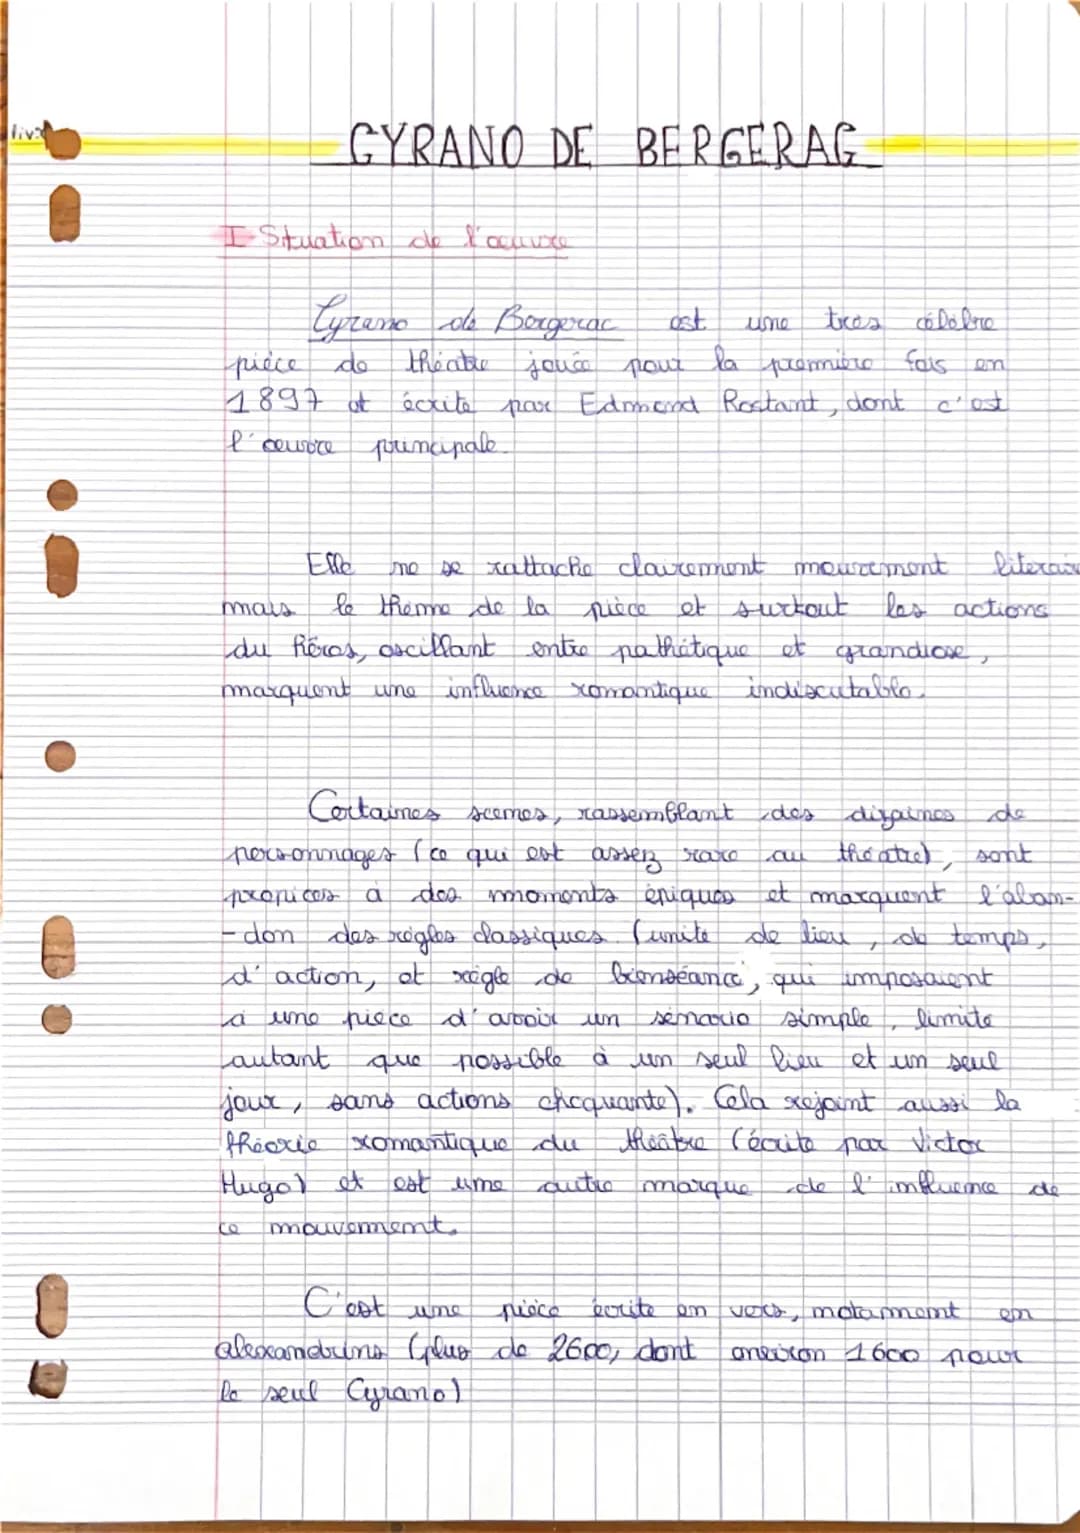 CYRANO DE BERGERAC
I Situation de l'oeuvre
Cyrano de Bergerac est une très célèbre
pièce de théâtre jouée pour la première fois en
1897 et écrite par Edmond Rostant, dont c'est
l'oeuvre principale.
Elle ne se rattache clairement mouvement literair
mais le thème de la pièce et surtout les actions
du héros, oscillant entre pathétique et grandiose,
marquent une influence romantique indiscutable.
Certaines scenes, rassemblant des dizaines de
personnages (ce qui est assez rare au théatre), sont
propices à des moments épiques et marquent l'aban-
-don des règles classiques (unité de lieu, de temps,
d'action, et règle de bienséance, qui imposaient
à une piece d'avoir un sénario simple, limite
autant que possible à un seul lieu et un seul
jour, sans actions choquante). Cela rejoint aussi la
théorie romantique du théâtre (écrite par Victor
Hugo) et est une autre marque de l'influence de
ce mouvement.
C'est une pièce écrite en vers, notamment en
alexandrins (plus de 2600, dont environ 1600 pour
le seul Cyrano)